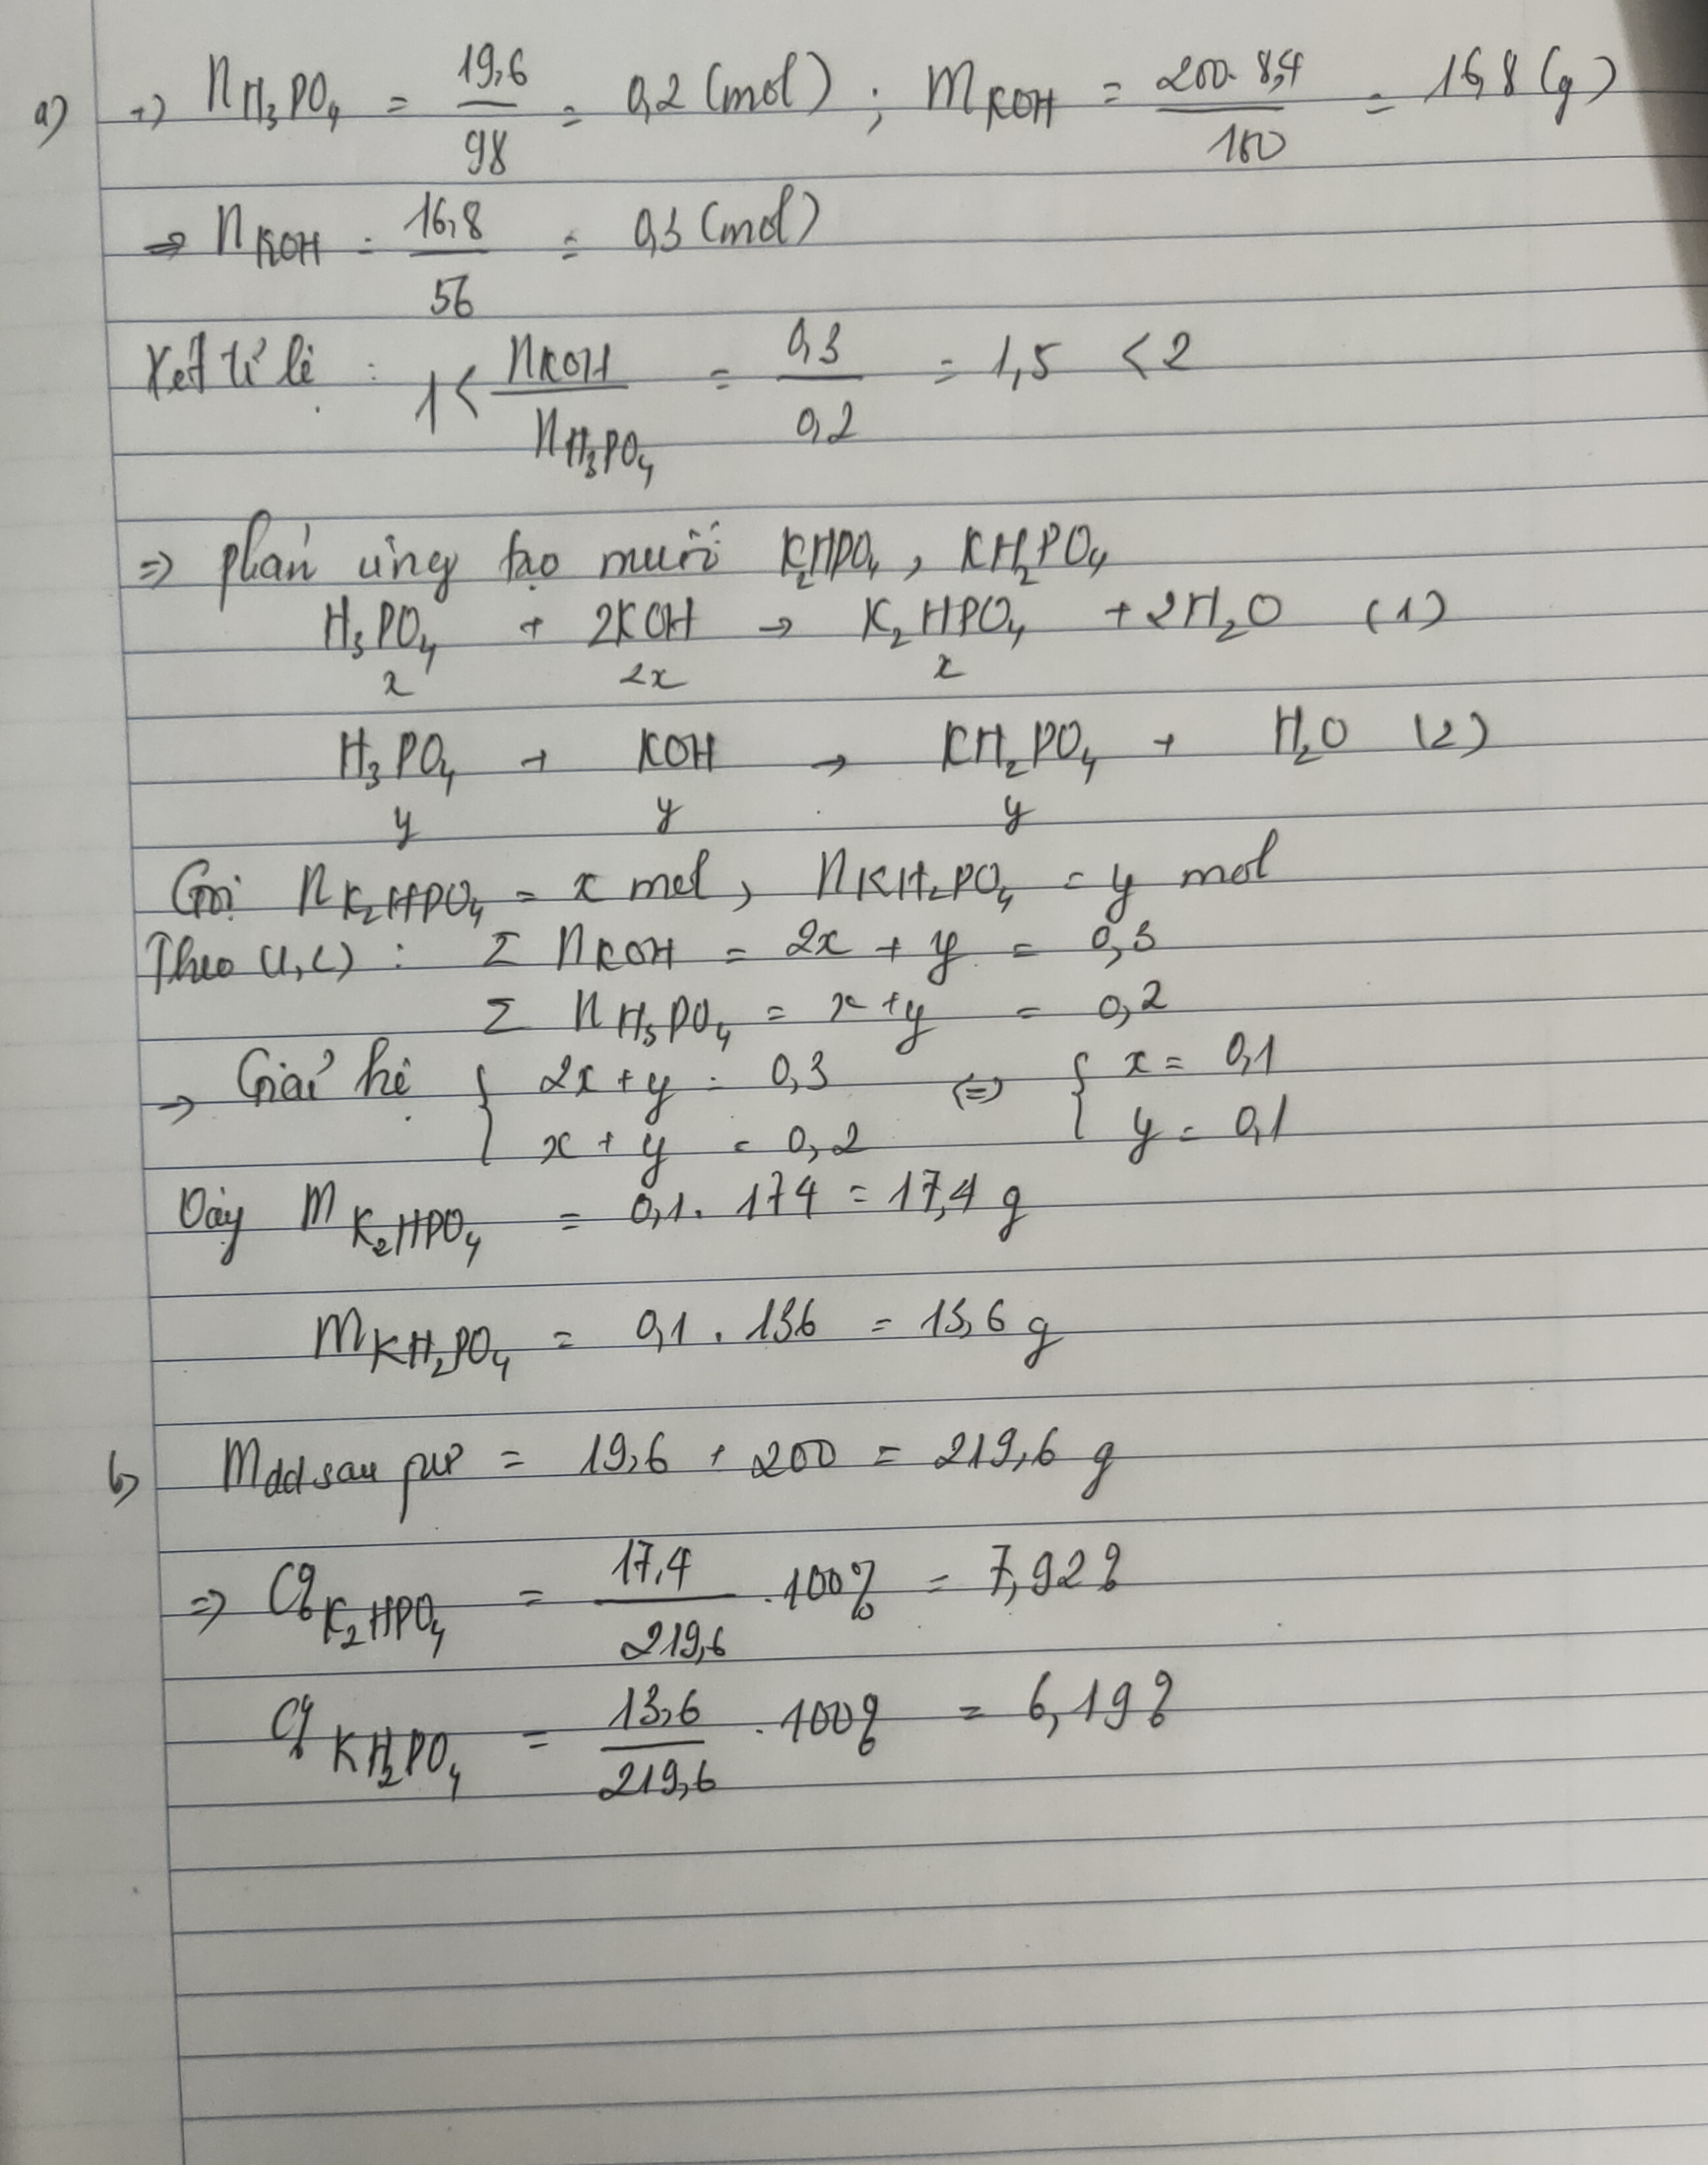 a) => nH₃PO₄ = 19,6/98 = 0,2 (mol) ; mKOH = 200. 8,4/100 = 16,8 (g)
=> nKOH = 16,8/56 = 0,3 (mol)
Xét tỉ lệ : 1 < nKOH/nH₃PO₄ = 0,3/0,2 = 1,5 < 2
=> phản ứng tạo muối K₂HPO₄, KH₂PO₄
H₃PO₄ + 2KOH → K₂HPO₄ + 2H₂O (1)
x 2x x
H₃PO₄ + KOH → KH₂PO₄ + H₂O (2)
y y y
Gọi nK₂HPO₄ = x mol, nKH₂PO₄ = y mol
Theo (1,2) : Σ nKOH = 2x + y = 0,3
Σ nH₃PO₄ = x + y = 0,2
→ Giải hệ { 2x + y = 0,3 <=> { x = 0,1
x + y = 0,2 y = 0,1
Vậy mK₂HPO₄ = 0,1. 174 = 17,4 g
mKH₂PO₄ = 0,1 . 136 = 13,6 g
b) mdd sau pư = 19,6 + 200 = 219,6 g
=> C%K₂HPO₄ = 17,4/219,6 . 100% = 7,92%
C%KH₂PO₄ = 13,6/219,6 . 100% = 6,19%